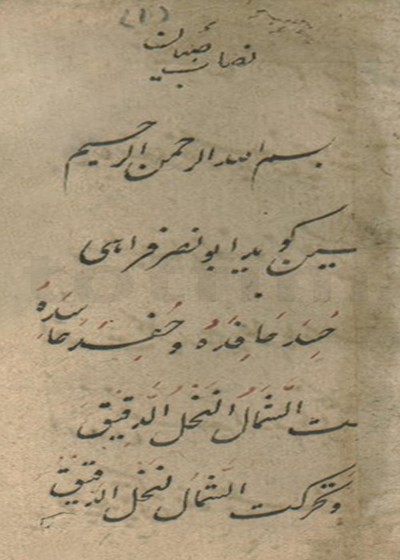 (۱)
نصاب صبیان
بسم الله الرحمن الرحیم
سین کوید ابو نصر فراهی
حافده و حفد
ت الشمال النخل الدقیق
و تحرکت الشمال نخل الدقیق